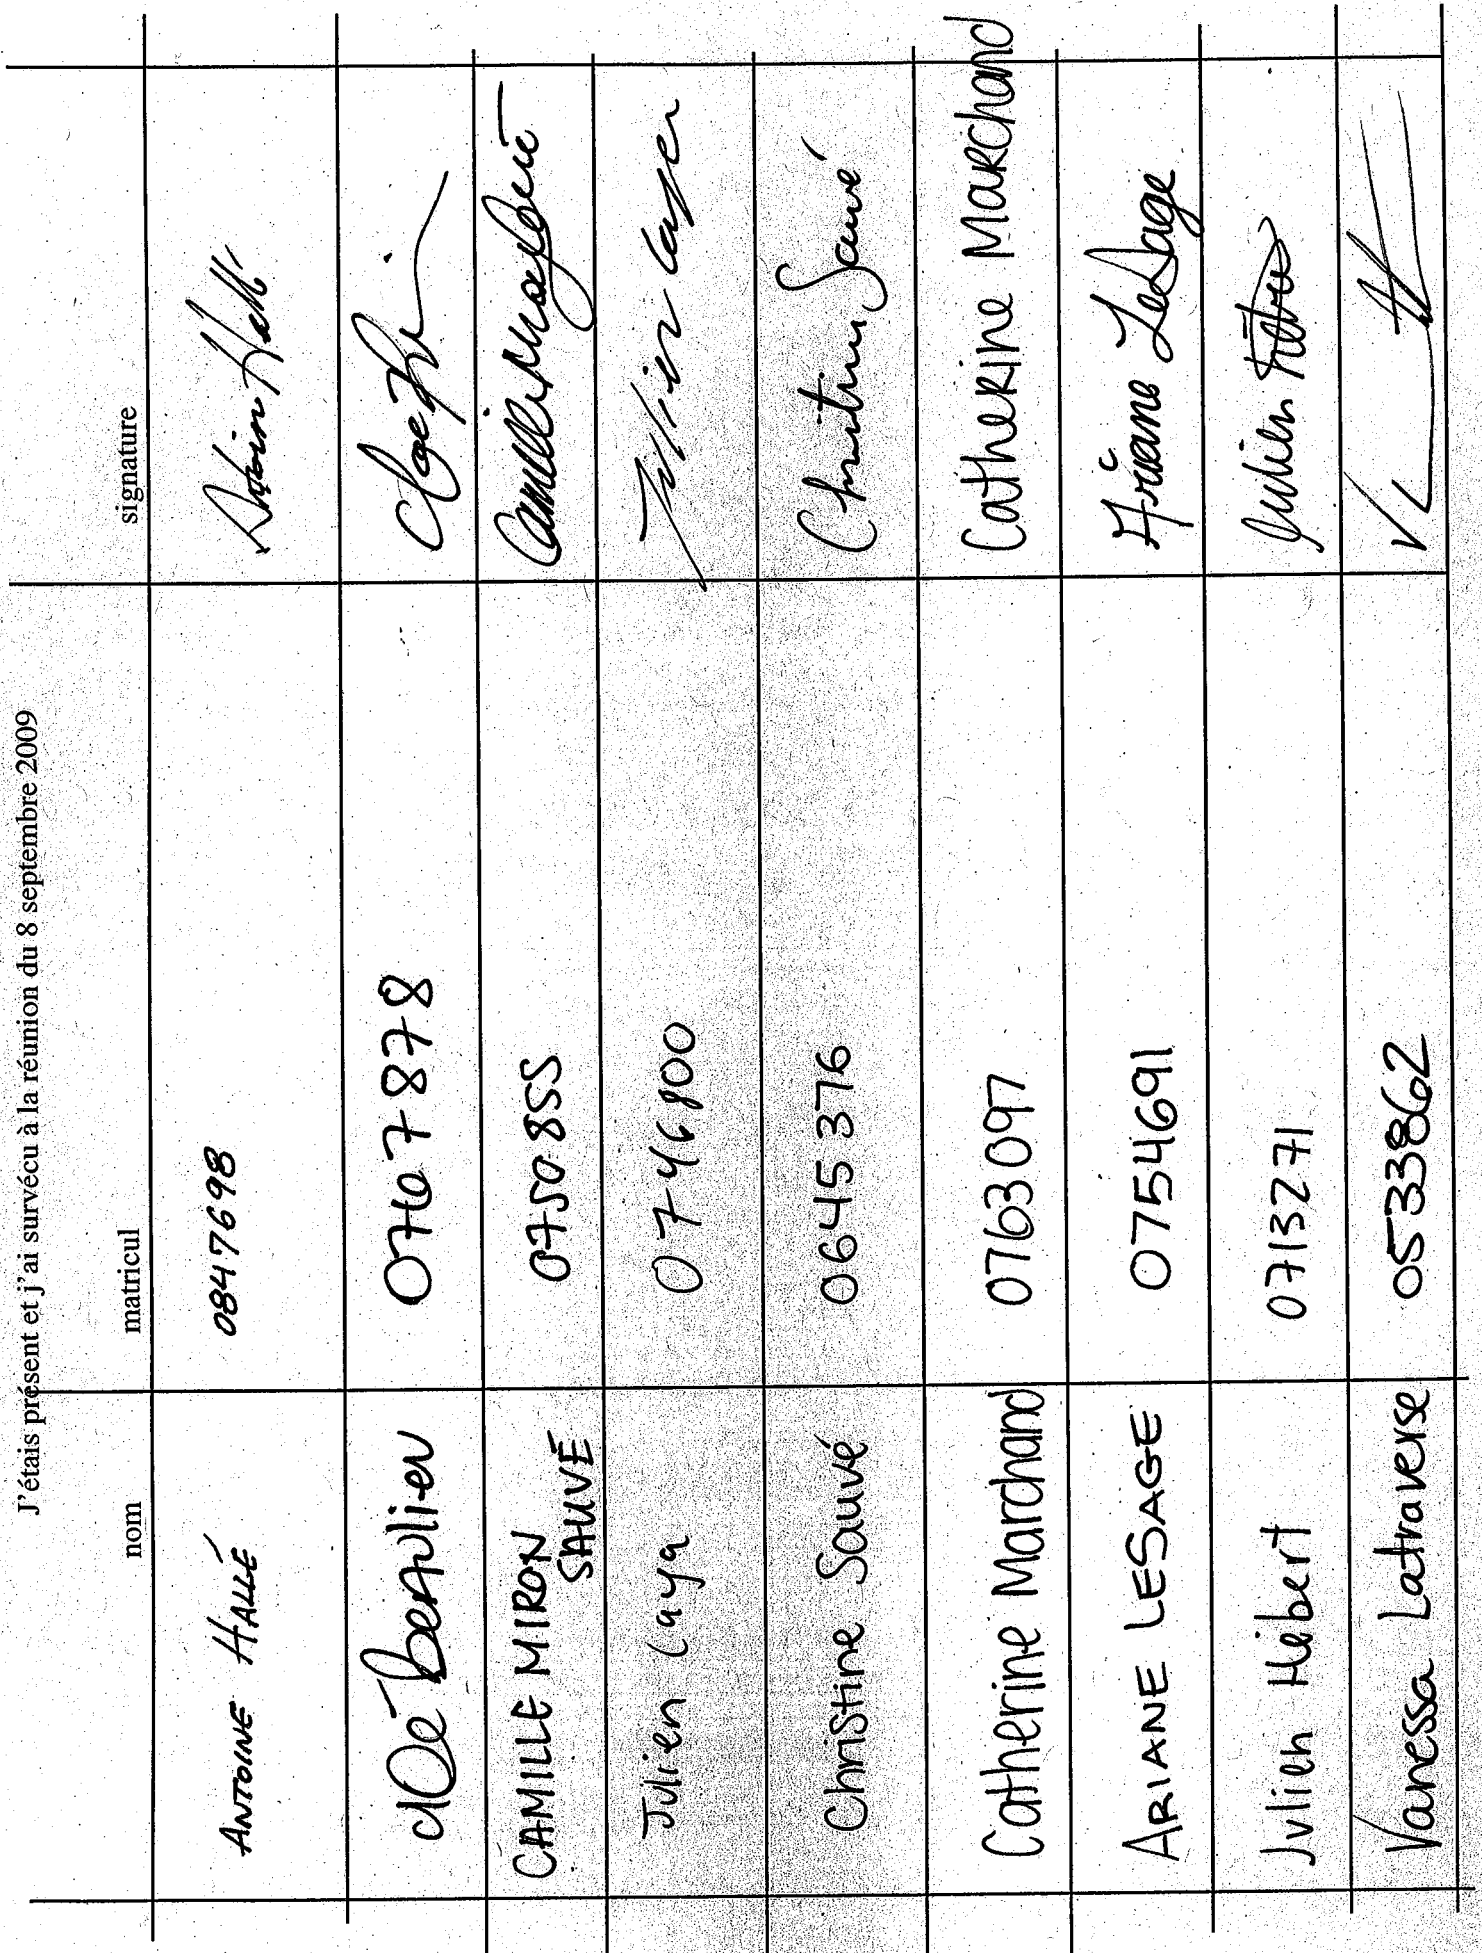 J'étais présent et j'ai survécu à la réunion du 8 septembre 2009
nom matricul signature
ANTOINE HALLÉ 0847698 Antoine Hallé
cloé beaulieu 0767878
CAMILLE MIRON 0750855
SAUVÉ
Julien Caya 0746800 Julien Caya
Christine Sauvé 0645376 Christine Sauvé
Catherine Marchand 0763097 Catherine Marchand
ARIANE LESAGE 0754691 Ariane LeSage
Julien Hébert 0713271 Julien Hébert
Vanessa Latraverse 0533862